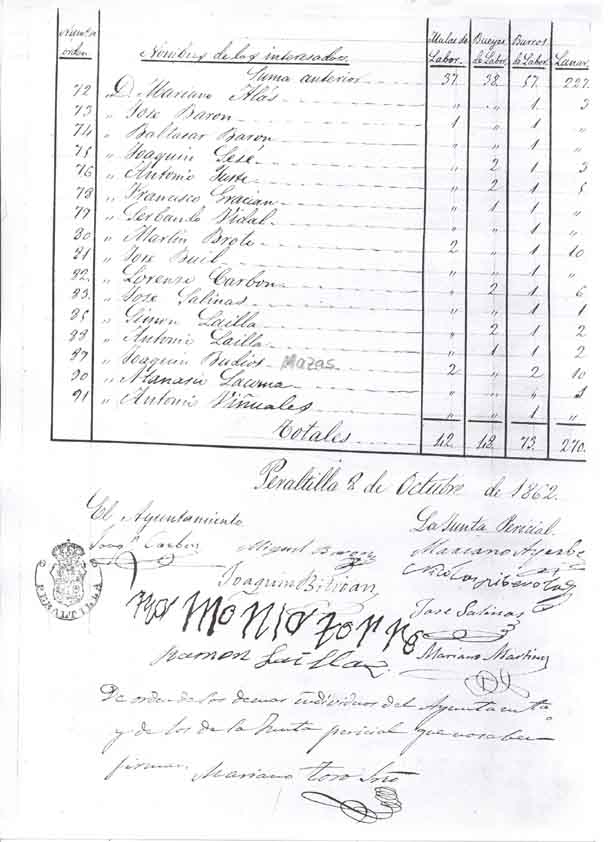 Núm.º de orden. Nombres de los interesados. Mulas de Labor. Bueyes de Labor. Burros de Labor. Lanar.
Suma anterior 37. 38. 57. 227.
72 D. Mariano Alás " " 1 3
73 " Jose Baron 1 " 1 "
74 " Baltasar Baron " " 1 "
75 " Joaquin Sesé " 2 1 3
76 " Antonio " 2 1 5
78 " Francisco Gracian " 1 1 "
" Serbando Vidal " " 1 "
80 " Martin Brote 2 " 1 10
81 " Jose Buil " " 1 "
82. " Lorenzo Carbon " 2 1 6
83. " Jose Salinas " " 1 1
85 " Simon Lailla " 2 1 2
88 " Antonio Lailla " 1 1 2
" Joaquin Mazas 2 " 2 10
90 " Atanasio Lacoma " " "
91 " Antonio Viñuales " " 1 "
Totales 42. 48. 73. 270.
Peraltilla 8 de Octubre de 1862.
El Ayuntamiento La Junta Pericial.
Joaqⁿ Carbon Miguel Baron Mariano Ayerbe
Joaquin Nicolas
Jose Salinas
Ramon Lailla Mariano Martinez
De orden de los demas individuos del Ayuntamto
y de los de la Junta pericial que no saben
firmar. Mariano Toro Srio